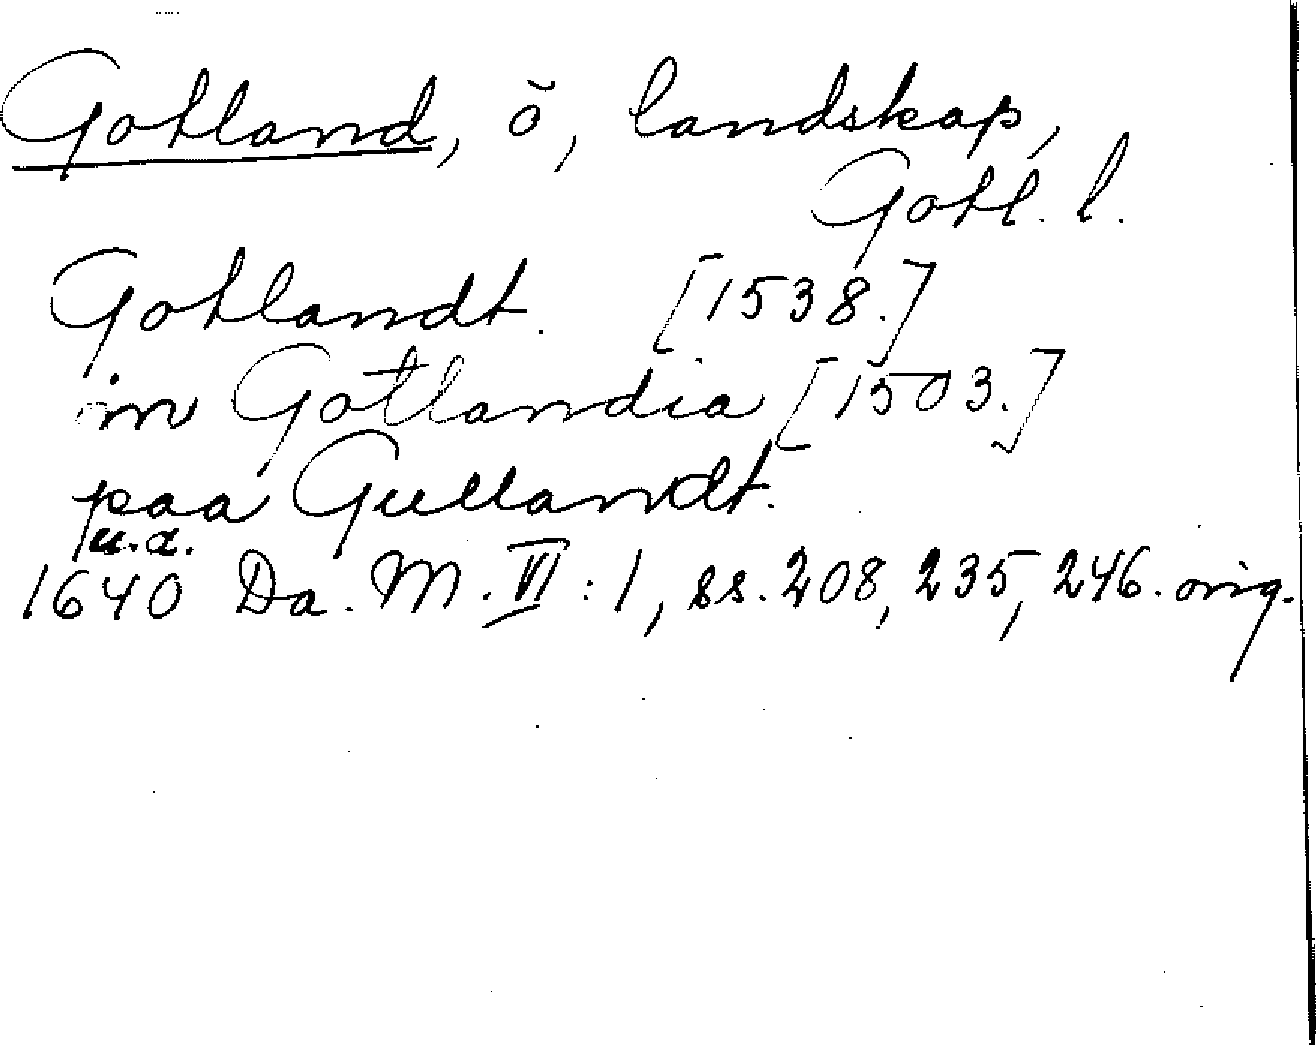 Gotland, ö, landskap,
Gotl. l.
Gotlandt. [1538.]
in Gotlandia [1503.]
paa Gullandt.
u.a.
1640 Da. M. VI : 1, ss. 208, 235, 246. orig.